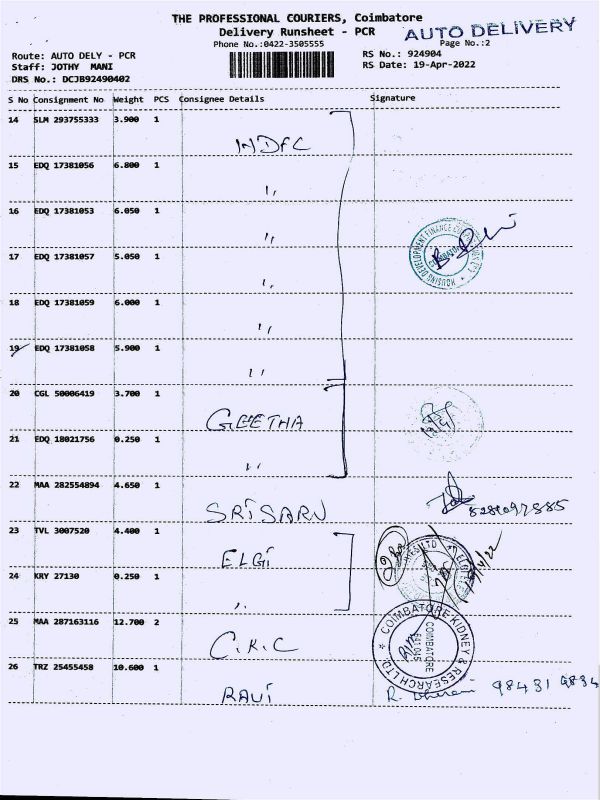 THE PROFESSIONAL COURIERS, Coimbatore
Delivery Runsheet - PCR
AUTO DELIVERY
Phone No.:0422-3505555
Page No.:2
Route: AUTO DELY - PCR
RS No.: 924904
Staff: JOTHY MANI
RS Date: 19-Apr-2022
DRS No.: DCJB92490402
S No Consignment No Weight PCS Consignee Details Signature
14 SLM 293755333 3.900 1
INDFC
15 EDQ 17381056 6.800 1
"
16 EDQ 17381053 6.050 1
"
17 EDQ 17381057 5.050 1
"
18 EDQ 17381059 6.000 1
"
19 EDQ 17381058 5.900 1
"
20 CGL 50006419 3.700 1
GEETHA
21 EDQ 18021756 0.250 1
"
22 MAA 282554894 4.650 1
SRISARU
23 TVL 3007520 4.400 1
ELGI
24 KRY 27130 0.250 1
"
25 MAA 287163116 12.700 2
C.K.C
COIMBATORE KIDNEY & RESEARCH LTD.
COIMBATORE
641 045
26 TRZ 25455458 10.600 1
RAVI
98431 9834